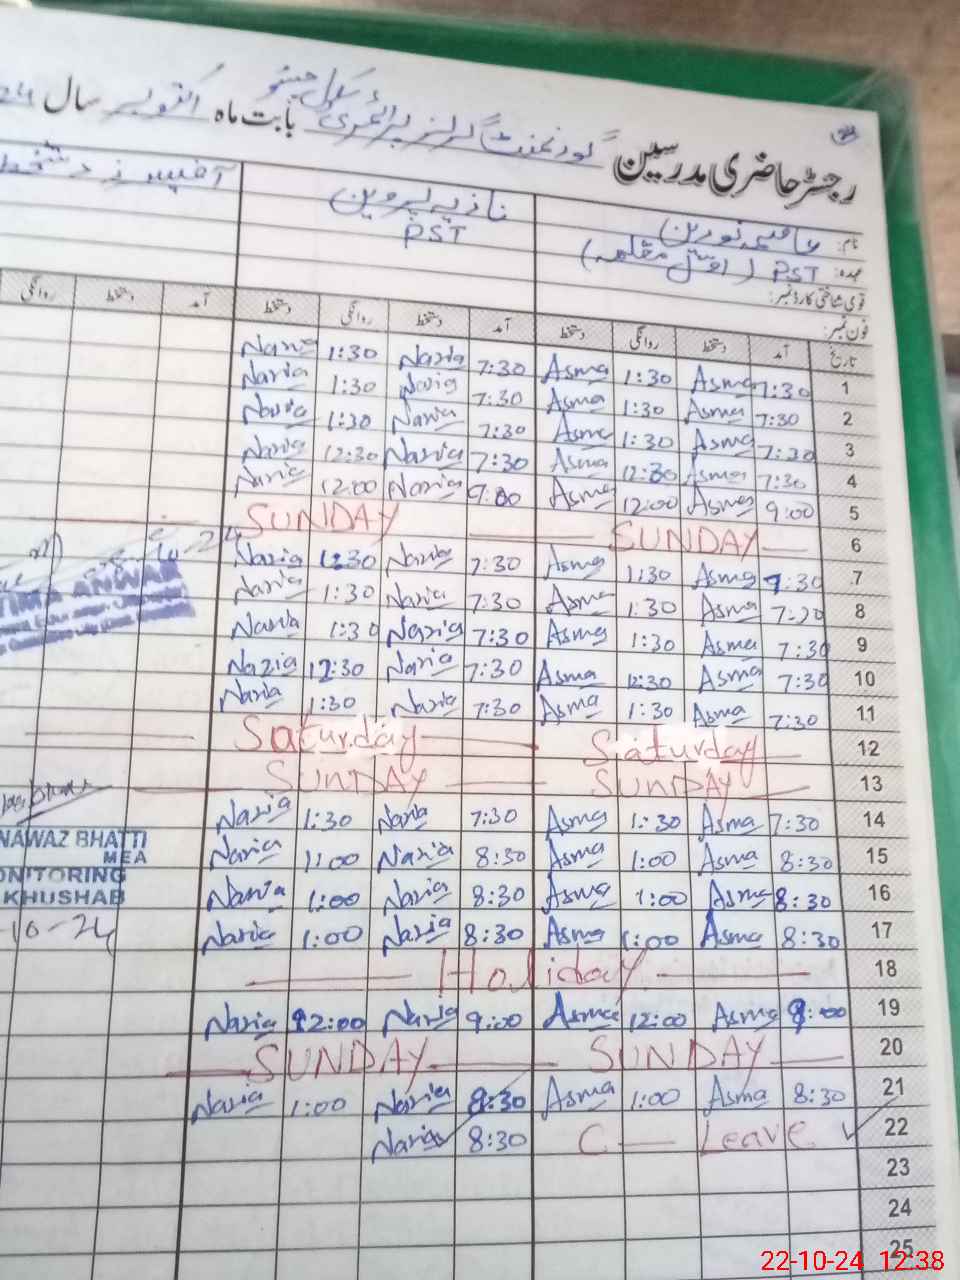 رجسٹر حاضری مدرسین گورنمنٹ گرلز پرائمری سکول بابت ماہ اکتوبر سال 24
نام: عاصمہ نورین نازیہ پروین آفیسر ز دستخط
عہدہ: PST PST
قومی شناختی کارڈ نمبر:
فون نمبر:
تاریخ آمد دستخط روانگی دستخط آمد دستخط روانگی دستخط آمد دستخط روانگی
Nazia 1:30 Nazia 7:30 Asma 1:30 Asma 7:30 1
Nazia 1:30 Nazia 7:30 Asma 1:30 Asma 7:30 2
Nazia 1:30 Nazia 7:30 Asma 1:30 Asma 7:30 3
Nazia 12:30 Nazia 7:30 Asma 12:30 Asma 7:30 4
Nazia 12:00 Nazia 9:00 Asma 12:00 Asma 9:00 5
SUNDAY SUNDAY 6
Nazia 1:30 Nazia 7:30 Asma 1:30 Asma 7:30 7
Nazia 1:30 Nazia 7:30 Asma 1:30 Asma 7:30 8
Nazia 1:30 Nazia 7:30 Asma 1:30 Asma 7:30 9
Nazia 12:30 Nazia 7:30 Asma 12:30 Asma 7:30 10
Nazia 1:30 Nazia 7:30 Asma 1:30 Asma 7:30 11
Saturday Saturday 12
SUNDAY SUNDAY 13
Nazia 1:30 Nazia 7:30 Asma 1:30 Asma 7:30 14
Nazia 1:00 Nazia 8:30 Asma 1:00 Asma 8:30 15
Nazia 1:00 Nazia 8:30 Asma 1:00 Asma 8:30 16
Nazia 1:00 Nazia 8:30 Asma 1:00 Asma 8:30 17
Holiday 18
Nazia 12:00 Nazia 9:00 Asma 12:00 Asma 9:00 19
SUNDAY SUNDAY 20
Nazia 1:00 Nazia 8:30 Asma 1:00 Asma 8:30 21
Nazia 8:30 C — Leave 22
23
24
25
TIMA ANWAR
NAWAZ BHATTI
MEA
ONITORING
KHUSHAB
-10-24
22-10-24 12:38